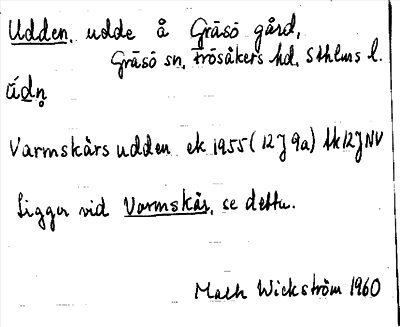 Udden, udde å Gräsö gård,
Gräsö sn, Frösåkers hd, Sthlms l.
ú̄dn̥
Varmskärs udden ek 1955 (12J 9a) tk 12J NV
Ligger vid Varmskär, se detta.
Math Wickström 1960